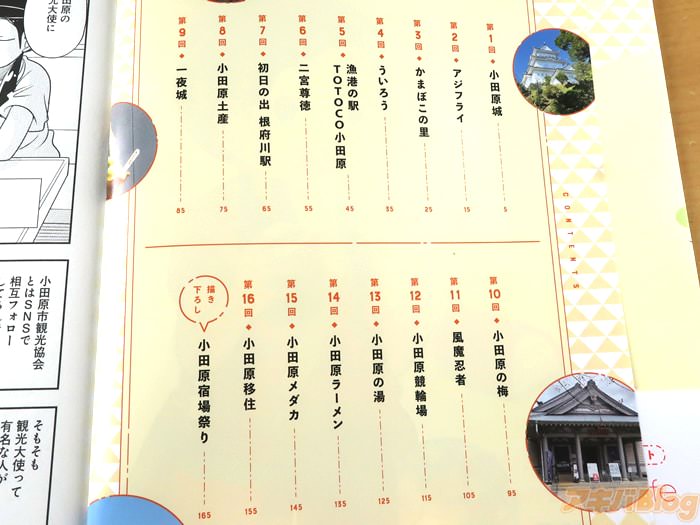 第1回◆小田原城 5
第2回◆アジフライ 15
第3回◆かまぼこの里 25
第4回◆ういろう 35
第5回◆漁港の駅
TOTOCO小田原 45
第6回◆二宮尊徳 55
第7回◆初日の出 根府川駅 65
第8回◆小田原土産 75
第9回◆一夜城 85
CONTENTS
第10回◆小田原の梅 95
第11回◆風魔忍者 105
第12回◆小田原競輪場 115
第13回◆小田原の湯 125
第14回◆小田原ラーメン 135
第15回◆小田原メダカ 145
第16回◆小田原移住 155
描き
下ろし
小田原宿場祭り 165
田原の
光大使に
小田原市観光協会
とはSNSで
相互フォロー
そもそも
観光大使って
有名な人が
ト
fe
アキバBlog